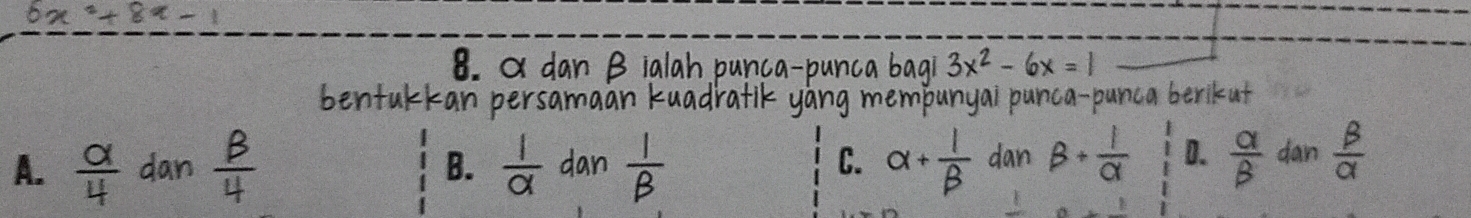 6x² + 8x - 1
8. α dan β ialah punca-punca bagi 3x² - 6x = 1
bentukkan persamaan kuadratik yang mempunyai punca-punca berikut
A. α/4 dan β/4 B. 1/α dan 1/β C. α + 1/β dan β + 1/α D. α/β dan β/α